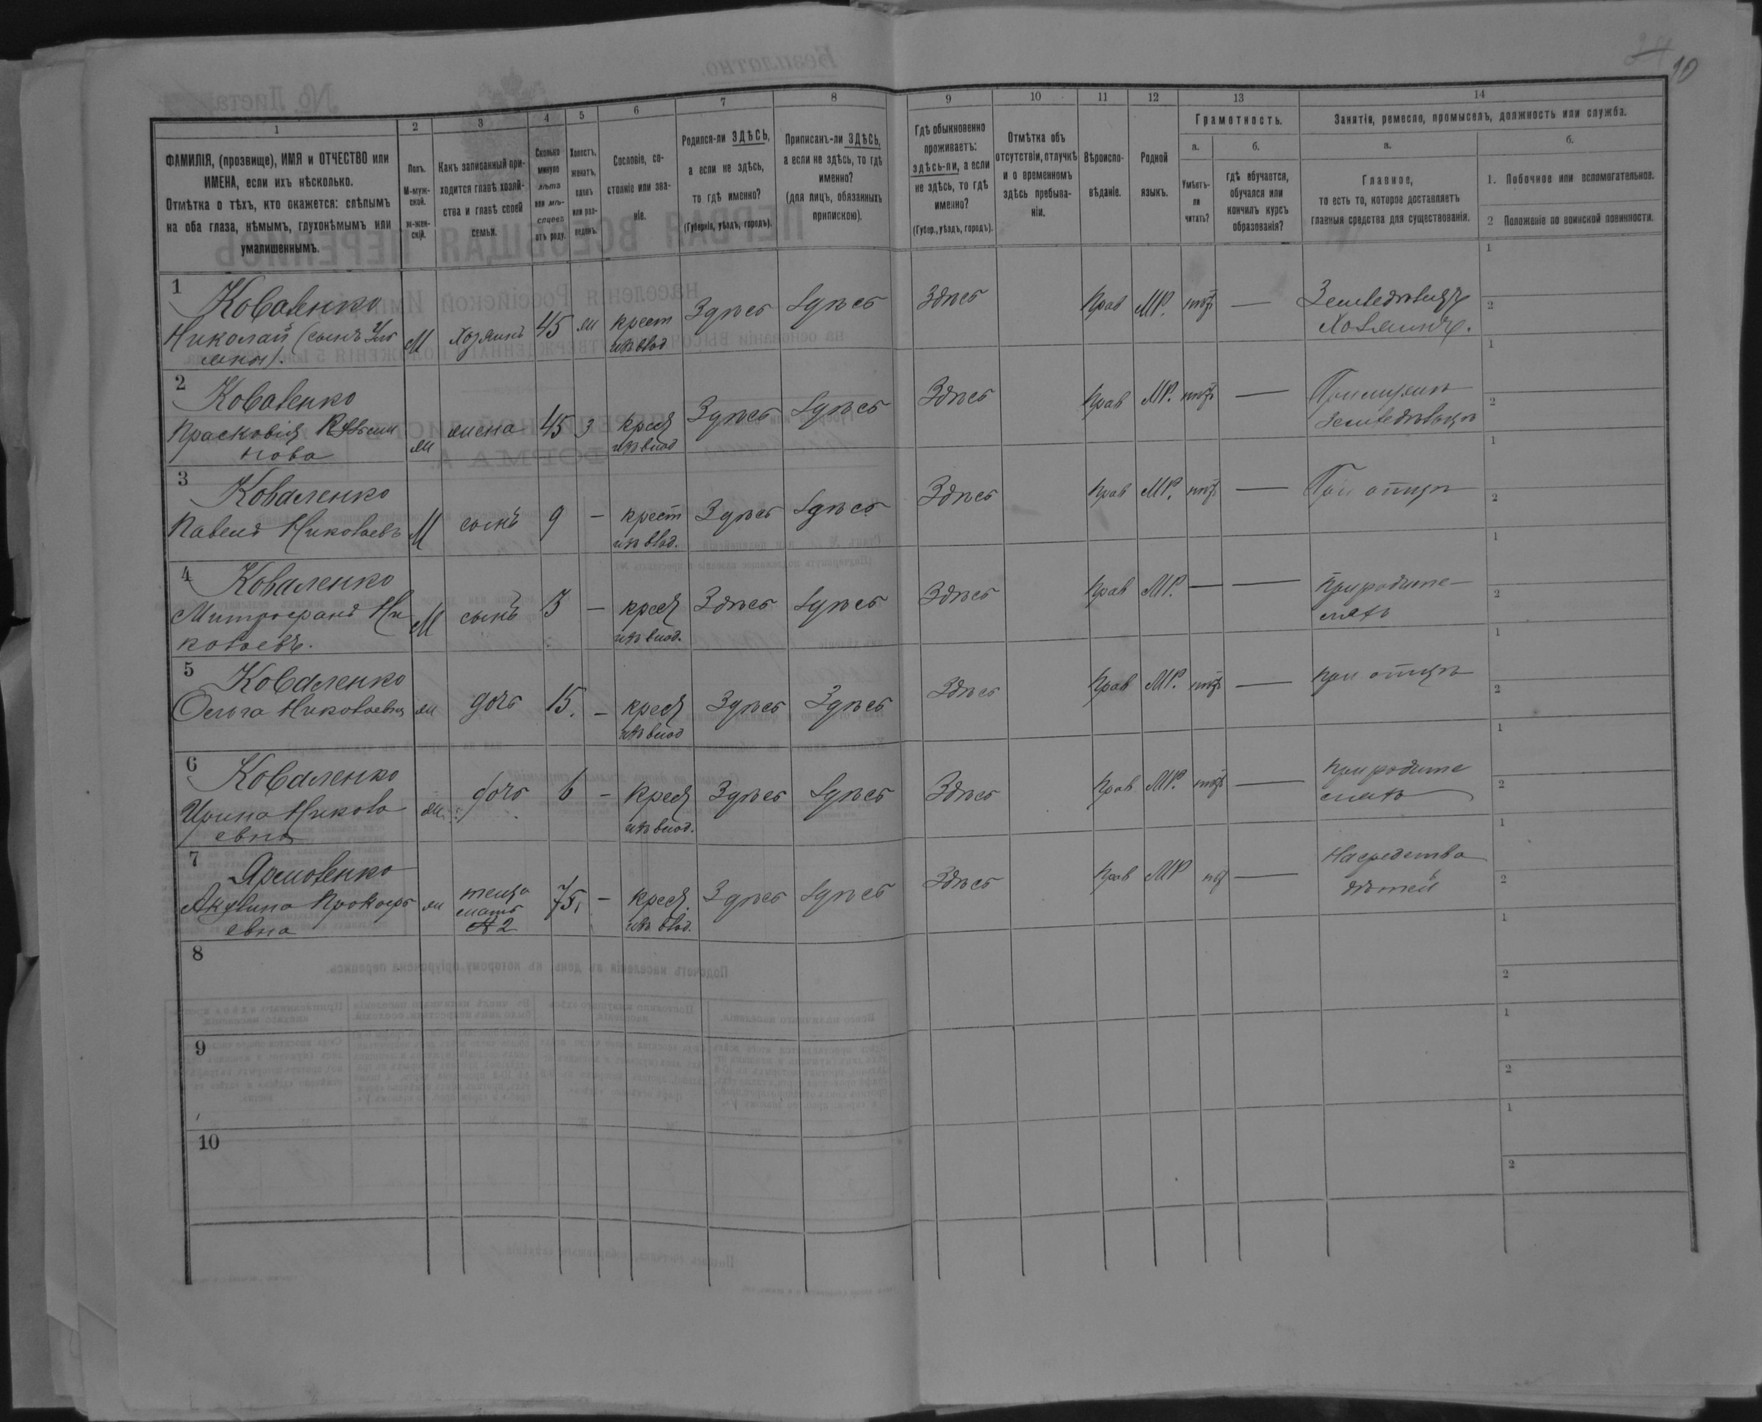 10
1 2 3 4 5 6 7 8 9 10 11 12 13 14
ФАМИЛІЯ, (прозвище), ИМЯ и ОТЧЕСТВО или ИМЕНА, если ихъ нѣсколько.
Отмѣтка о тѣхъ, кто окажется: слѣпымъ на оба глаза, нѣмымъ, глухонѣмымъ или умалишеннымъ.
Полъ.
М-муж-
ской.
ж-жен-
скій.
Какъ записанный при-
ходится главѣ хозяй-
ства и главѣ своей
семьи.
Сколько
минуло
лѣтъ
или мѣ-
сяцевъ
отъ роду.
Холостъ,
женатъ,
вдовъ
или раз-
веденъ.
Сословіе, со-
стояніе или зва-
ніе.
Родился-ли ЗДѢСЬ,
а если не здѣсь,
то гдѣ именно?
(Губернія, уѣздъ, городъ).
Приписанъ-ли ЗДѢСЬ,
а если не здѣсь, то гдѣ
именно?
(для лицъ, обязанныхъ
припискою).
Гдѣ обыкновенно
проживаетъ:
здѣсь-ли, а если
не здѣсь, то гдѣ
именно?
(Губер., уѣздъ, городъ).
Отмѣтка объ
отсутствіи, отлучкѣ
и о временномъ
здѣсь пребыва-
ніи.
Вѣроиспо-
вѣданіе.
Родной
языкъ.
Грамотность.
а.
Умѣетъ-
ли
читать?
б.
гдѣ обучается,
обучался или
кончилъ курсъ
образованія?
Занятіе, ремесло, промыселъ, должность или служба.
а.
Главное,
то есть то, которое доставляетъ
главныя средства для существованія.
б.
1. Побочное или вспомогательное.
2 Положеніе по воинской повинности.
1
Коваленко
Николай (сынъ
М Хозяинъ 45 ж крест Здѣсь Здѣсь Здѣсь Прав МР. —
Земледѣлецъ
Хозяинъ.
2
Коваленко
Прасковія
нова
ж жена 45 З крест Здѣсь Здѣсь Здѣсь Прав МР. —
При мужѣ
земледѣльцѣ
3
Коваленко
Павелъ Николаевъ
М сынъ 9 — крест Здѣсь Здѣсь Здѣсь Прав МР. —
При отцѣ
4
Коваленко
Митрофанъ Ни
колаевъ.
М сынъ 3 — крест Здѣсь Здѣсь Здѣсь Прав МР. — —
При родите
ляхъ
5
Коваленко
Ольга Николаевна
ж дочь 15. — крест Здѣсь Здѣсь Здѣсь Прав МР. —
При отцѣ
6
Коваленко
Ирина Никола
евна
ж дочь 6 — крест Здѣсь Здѣсь Здѣсь Прав МР. —
При родите
ляхъ
7
Ярмоленко
Акулина Прокофь
евна
ж теща
мать
№ 2
75, — крест. Здѣсь Здѣсь Здѣсь Прав МР —
На средства
дѣтей
8
9
10